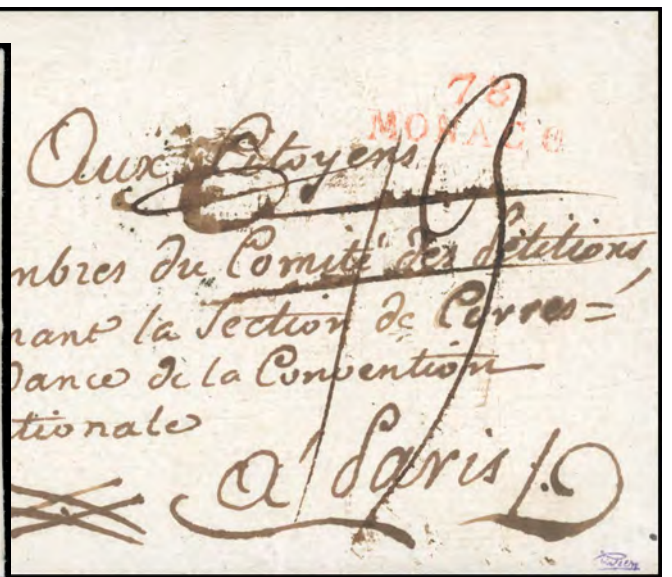 78
MONACO
Aux Citoyens
mbres du Comité des Pétitions,
nant la Section de Corres=
dance de la Convention
tionale
A Paris